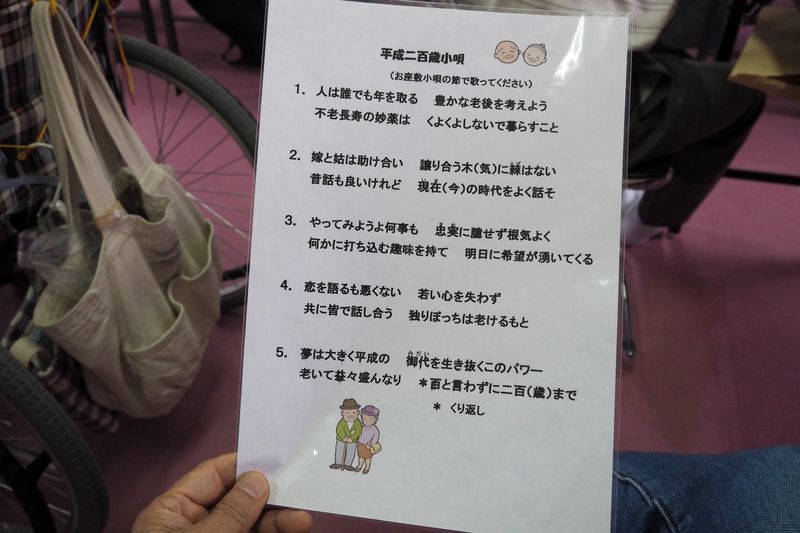 平成二百歳小唄
(お座敷小唄の節で歌ってください)
1. 人は誰でも年を取る 豊かな老後を考えよう
不老長寿の妙薬は くよくよしないで暮らすこと
2. 嫁と姑は助け合い 譲り合う木(気)に棘はない
昔話も良いけれど 現在(今)の時代をよく話そ
3. やってみようよ何事も 忠実に臆せず根気よく
何かに打ち込む趣味を持て 明日に希望が湧いてくる
4. 恋を語るも悪くない 若い心を失わず
共に皆で話し合う 独りぼっちは老けるもと
5. 夢は大きく平成の 御代を生き抜くこのパワー
老いて益々盛んなり *百と言わずに二百(歳)まで
* くり返し